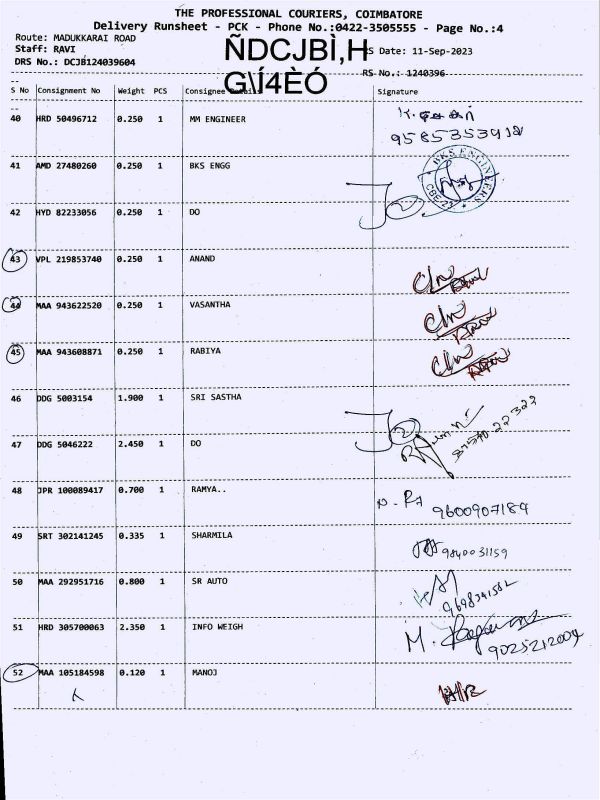 THE PROFESSIONAL COURIERS, COIMBATORE
Delivery Runsheet - PCK - Phone No.:0422-3505555 - Page No.:4
Route: MADUKKARAI ROAD
Staff: RAVI
DRS No.: DCJB124039604
ÑDCJBÌ,H
G\Í4ÈÓ
RS Date: 11-Sep-2023
RS No.: 1240396
S No Consignment No Weight PCS Consignee Details Signature
40 HRD 50496712 0.250 1 MM ENGINEER
9585353912
41 AMD 27480260 0.250 1 BKS ENGG
BKS ENGINEERS
42 HYD 82233056 0.250 1 DO
43 VPL 219853740 0.250 1 ANAND
44 MAA 943622520 0.250 1 VASANTHA
45 MAA 943608871 0.250 1 RABIYA
46 DDG 5003154 1.900 1 SRI SASTHA
47 DDG 5046222 2.450 1 DO
48 JPR 100089417 0.700 1 RAMYA..
9600907184
49 SRT 302141245 0.335 1 SHARMILA
9840031159
50 MAA 292951716 0.800 1 SR AUTO
51 HRD 305700063 2.350 1 INFO WEIGH
9025212004
52 MAA 105184598 0.120 1 MANOJ